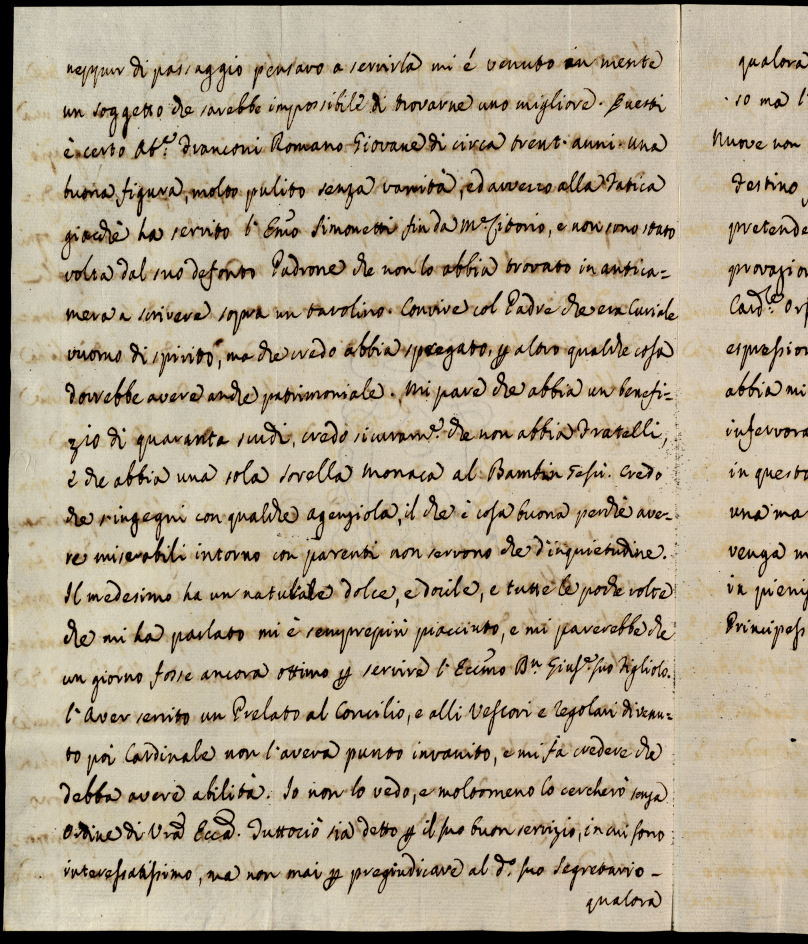 neppur di passaggio pensavo a servirla mi é venuto in mente
un soggetto che sarebbe impossibile di trovarne uno migliore. Questi
è certo Ab.e Franconi Romano Giovane di circa trent'anni. una
buona figura, molto pulito senza vanità, ed avvezzo alla fatica
giacchè ha servito l'Emo Simonetti fin da M.e Citorio, e non sono stato
volta dal suo defonto Padrone che non lo abbia trovato in antica=
mera a scrivere sopra un tavolino. Convive col Padre che era Curiale
vuomo di spirito, ma che credo abbia spregato, p altro qualche cosa
dovrebbe avere anche patrimoniale. Mi pare che abbia un benefi=
zio di quaranta scudi, credo sicuram.e che non abbia Fratelli,
e che abbia una sola sorella Monaca al Bambin Gesù. Credo
che s'ingegni con qualche agenziola, il che è cosa buona perchè ave=
re miserabili intorno con parenti non servono che d'inquietudine.
Il medesimo ha un naturale dolce, e docile, e tutte le poche volte
che mi ha parlato mi è semprepiù piacciuto, e mi parerebbe che
un giorno fosse ancora ottimo p servire l'Eccmo Bn Gius.e suo Figliolo.
l'Aver servito un Prelato al Concilio, e alli Vescovi e Regolari divenu=
to poi Cardinale non l'averà punto invanito, e mi fa credere che
debba avere abilità. Io non lo vedo, e moltomeno lo cercherò senza
Ordine di Vra Ecca. Tuttociò sia detto p il suo buon servizio, in cui sono
interessatissimo, ma non mai p pregiudicare al d.o suo Segretario -
qualora
qualora
so ma l'
Nuove non
destino
pretende
provazion
Card.le Ors
espression
abbia mi
infervora
in questo
una ma
venga m
in pieni
Principess